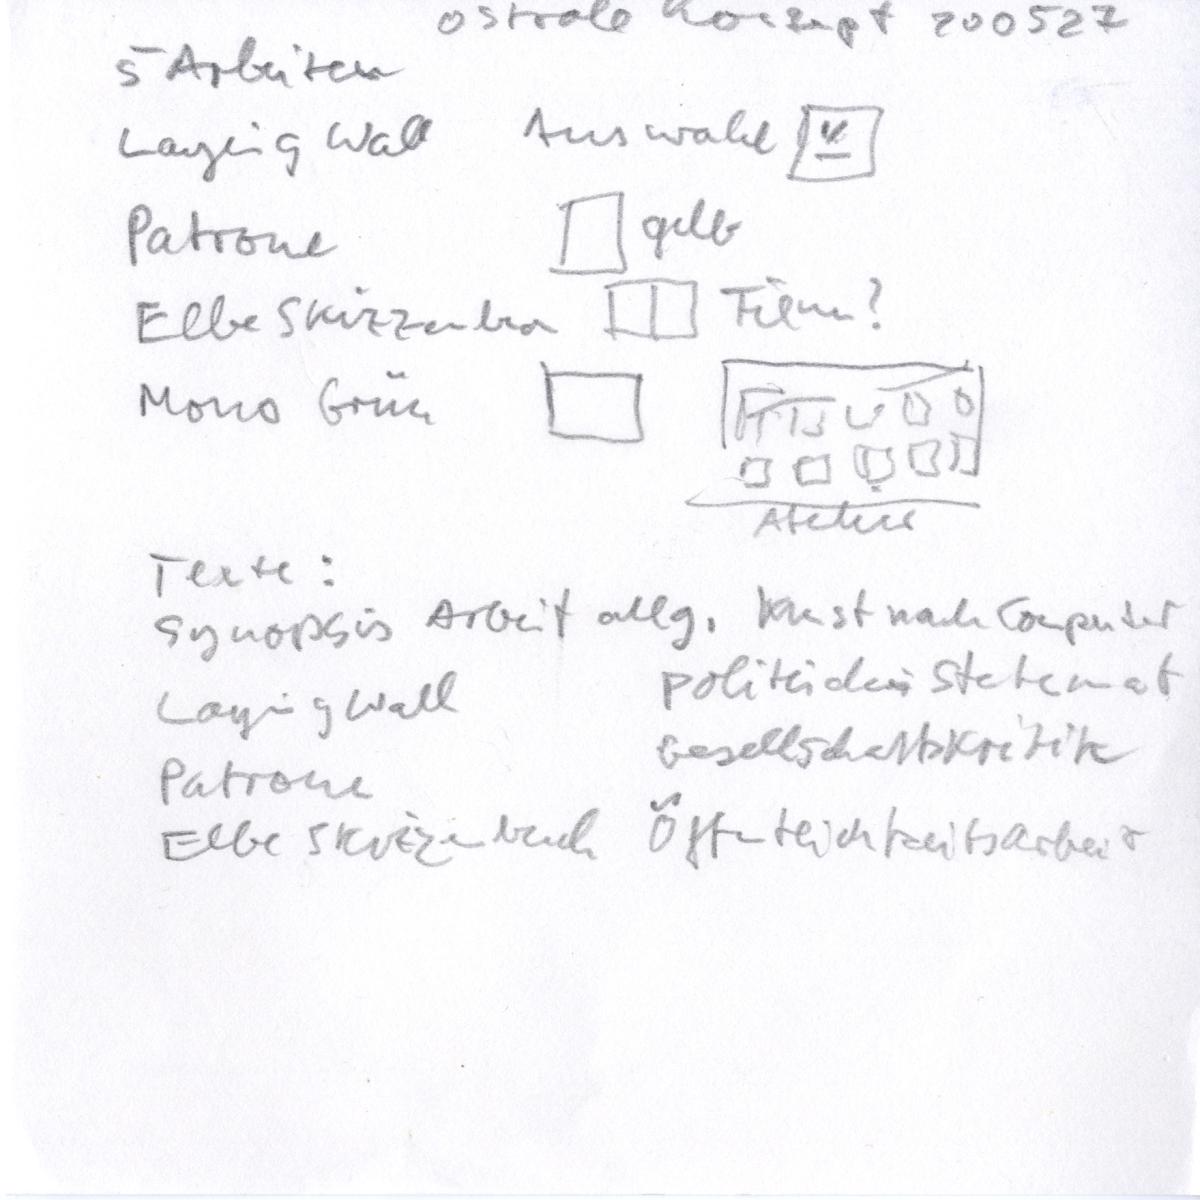 Ostrale Konzept 200527
5 Arbeiten
Laying Wall Auswahl
Patrone gelb
Elbe Skizzenbu Film?
Mono Grün
Atelier
Texte:
Synopsis Arbeit allg. Kunst nach Computer
Laying Wall politisches Statement
Patrone Gesellschaftskritik
Elbe Skizzenbuch Öffentlichkeitsarbeit